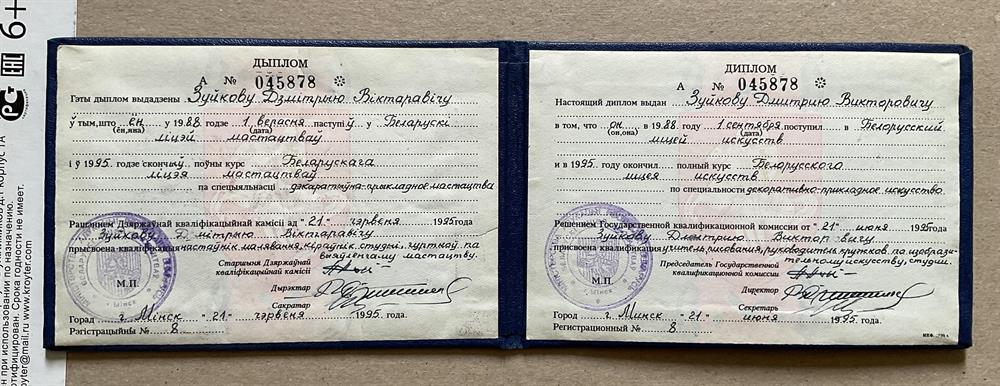 6+
ДЫПЛОМ
А № 045878
Гэты дыплом выдадзены Зуйкову Дзмітрыю Віктаравічу
ў тым, што ён у 1988 годзе 1 верасня паступіў у Беларускі
(ён, яна) (дата)
ліцэй мастацтваў
і ў 1995 годзе скончыў поўны курс Беларускага
ліцэя мастацтваў
па спецыяльнасці дэкаратыўна-прыкладное мастацтва
Рашэннем Дзяржаўнай кваліфікацыйнай камісіі ад "21" чэрвеня 1995 года
Зуйкову Дзмітрыю Віктаравічу
прысвоена кваліфікацыя настаўнік малявання, кіраўнік студыі, гурткоў па
выяўленчаму мастацтву.
Старшыня Дзяржаўнай
кваліфікацыйнай камісіі
М.П.
Дырэктар
Сакратар
Горад г. Мінск "21" чэрвеня 1995 года.
Рэгістрацыйны № 8
ДИПЛОМ
А № 045878
Настоящий диплом выдан Зуйкову Дмитрию Викторовичу
в том, что он в 1988 году 1 сентября поступил в Белорусский
(он, она) (дата)
лицей искусств
и в 1995 году окончил полный курс Белорусского
лицея искусств
по специальности декоративно-прикладное искусство.
Решением Государственной квалификационной комиссии от "21" июня 1995 года
Зуйкову Дмитрию Викторовичу
присвоена квалификация учитель рисования, руководитель кружков по изобрази-
тельному искусству, студии.
Председатель Государственной
квалификационной комиссии
М.П.
Директор
Секретарь
Город г. Минск "21" июня 1995 года.
Регистрационный № 8
н при использовании по назначению.
ртифицирован. Срока годности не имеет.
oyter@mail.ru www.kroyter.com